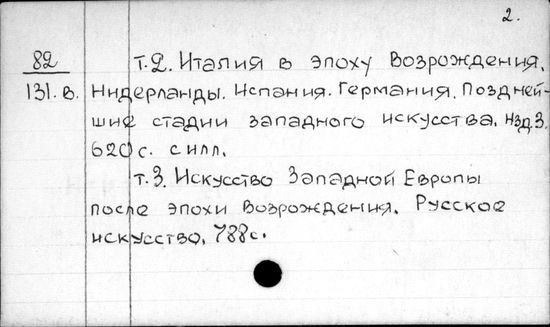 2.
82 т.2. Италия в эпоху Возрождения.
131.в. Нидерланды. Испания. Германия. Поздней-
шие стадии западного искусства. Изд.3.
620 с. с илл.
т.3. Искусство Западной Европы
после эпохи Возрождения. Русское
искусство. 788 с.